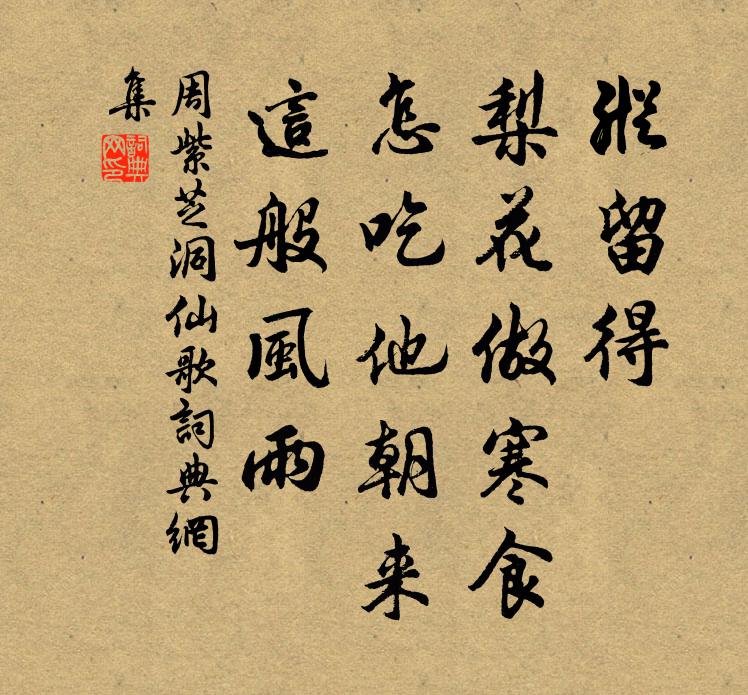 縱留得
梨花做寒食
怎吃他朝来
這般風雨
周紫芝洞仙歌詞典網
集
詞典网印